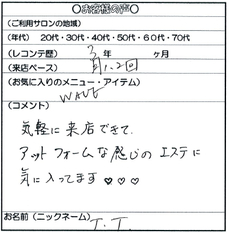 〇お客様の声〇
(ご利用サロンの地域)
(年代) 20代・30代・40代・50代・60代・70代
(レコンテ歴) 3 年 ヶ月
(来店ペース) 月1、2回
(お気に入りのメニュー・アイテム)
WAVE
(コメント)
気軽に来店できて、
アットフォームな感じのエステに
気に入ってます♡♡♡
お名前(ニックネーム)
T.T.